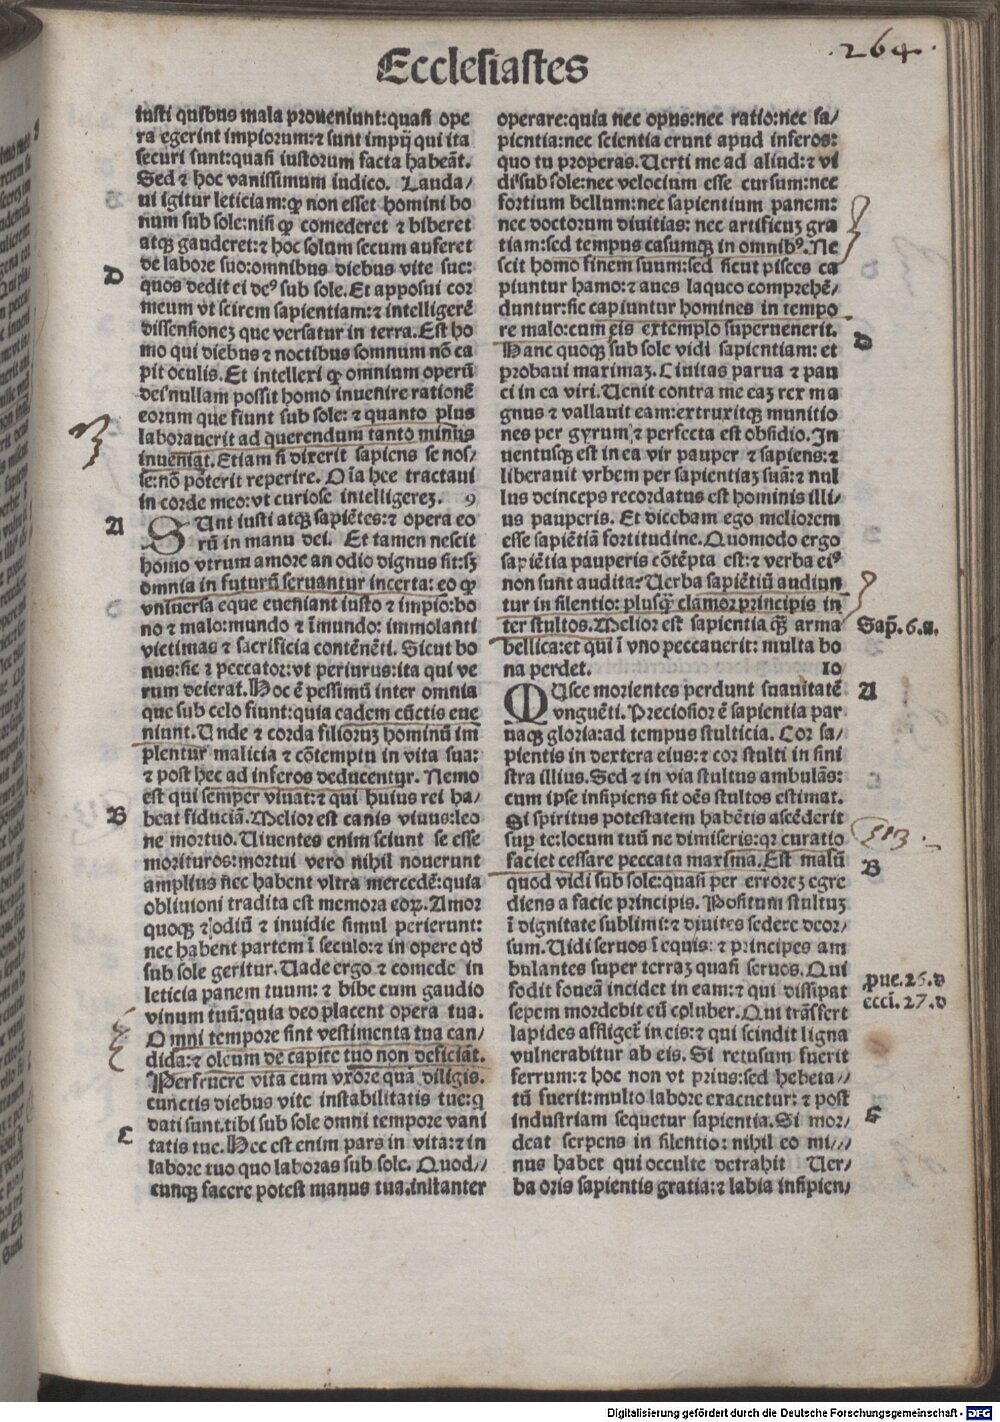 Ecclesiastes
.264.
iusti quibus mala proueniunt:quasi ope
ra egerint impiorum:⁊ sunt impij qui ita
securi sunt:quasi iustorum facta habeāt.
Sed ⁊ hoc vanissimum iudico. Lauda/
ui igitur leticiam:ꝙ non esset homini bo
num sub sole:nisi ꝙ comederet ⁊ biberet
atqꝫ gauderet:⁊ hoc solum secum auferet
de labore suo:omnibus diebus vite sue:
D
quos dedit ei deꝰ sub sole. Et apposui cor
meum vt scirem sapientiam:⁊ intelligerē
dissensioneꝫ que versatur in terra. Est ho
mo qui diebus ⁊ noctibus somnum nō ca
pit oculis. Et intellexi ꝙ omnium operū
dei nullam possit homo inuenire rationē
eorum que fiunt sub sole: ⁊ quanto plus
laborauerit ad querendum tanto minus
inueniat. Etiam si dixerit sapiens se nos/
se:nō poterit reperire. Oīa hec tractaui
in corde meo:vt curiose intelligereꝫ. 9
A
SUnt iusti atqꝫ sapiētes:⁊ opera eo
rū in manu dei. Et tamen nescit
homo vtrum amore an odio dignus sit:sꝫ
omnia in futurū seruantur incerta: eo ꝙ
vniuersa eque eueniant iusto ⁊ impio:bo
no ⁊ malo:mundo ⁊ īmundo: immolanti
victimas ⁊ sacrificia contēnēti. Sicut bo
nus:sic ⁊ peccator:vt periurus:ita qui ve
rum deierat. Hoc ē pessimū inter omnia
que sub celo fiunt:quia eadem cūctis eue
niunt. Unde ⁊ corda filioruꝫ hominū im
plentur malicia ⁊ cōtemptu in vita sua:
⁊ post hec ad inferos deducentur. Nemo
est qui semper viuat:⁊ qui huius rei ha/
B
beat fiduciā. Melior est canis viuus:leo
ne mortuo. Uiuentes enim sciunt se esse
morituros:mortui vero nihil nouerunt
amplius nec habent vltra mercedē:quia
obliuioni tradita est memoria eoꝝ. Amor
quoqꝫ ⁊ odiū ⁊ inuidie simul perierunt:
nec habent partem ī seculo:⁊ in opere qđ
sub sole geritur. Uade ergo ⁊ comede in
leticia panem tuum: ⁊ bibe cum gaudio
vinum tuū:quia deo placent opera tua.
Omni tempore sint vestimenta tua can/
dida:⁊ oleum de capite tuo non deficiāt.
Perfruere vita cum vxore quā diligis.
cunctis diebus vite instabilitatis tue:q
dati sunt.tibi sub sole omni tempore vani
C
tatis tue. Hec est enim pars in vita:⁊ in
labore tuo quo laboras sub sole. Quod//
cunqꝫ facere potest manus tua.instanter
operare:quia nec opus:nec ratio:nec sa/
pientia:nec scientia erunt apud inferos:
quo tu properas. Uerti me ad aliud:⁊ vi
di sub sole:nec velocium esse cursum:nec
fortium bellum:nec sapientium panem:
nec doctorum diuitias: nec artificuꝫ gra
tiam:sed tempus casumqꝫ in omnibꝰ. Ne
scit homo finem suum:sed sicut pisces ca
piuntur hamo:⁊ aues laqueo comprehē/
duntur:sic capiuntur homines in tempo
re malo:cum eis extemplo superuenerit.
D
Hanc quoqꝫ sub sole vidi sapientiam: et
probaui maximaꝫ. Ciuitas parua ⁊ pau
ci in ea viri. Uenit contra me eaꝫ rex ma
gnus ⁊ vallauit eam:extruxitqꝫ munitio
nes per gyrum ⁊ perfecta est obsidio. In
uentusqꝫ est in ea vir pauper ⁊ sapiens:⁊
liberauit vrbem per sapientiaꝫ suā:⁊ nul
lus deinceps recordatus est hominis illi/
us pauperis. Et dicebam ego meliorem
esse sapiētiā fortitudine. Quomodo ergo
sapiētia pauperis cōtēpta est:⁊ verba eiꝰ
non sunt audita? Uerba sapiētiū audiun
tur in silentio: plusꝗ̄ clamor principis in
ter stultos. Melior est sapientia ꝗ̄ arma
Sap̄. 6.a.
bellica:et qui ī vno peccauerit: multa bo
na perdet. 10
A
MUsce morientes perdunt suauitatē
vnguēti. Preciosior ē sapientia par
uaqꝫ gloria:ad tempus stulticia. Cor sa/
pientis in dextera eius:⁊ cor stulti in sini
stra illius. Sed ⁊ in via stultus ambulās:
cum ipse insipiens sit oēs stultos estimat.
Si spiritus potestatem habētis ascēderit
suꝑ te:locum tuū ne dimiseris:qꝛ curatio
faciet cessare peccata maxima. Est malū
B
quod vidi sub sole:quasi per erroreꝫ egre
diens a facie principis. Positum stultuꝫ
ī dignitate sublimi:⁊ diuites sedere deor/
sum. Uidi seruos ī equis: ⁊ principes am
bulantes super terraꝫ quasi seruos. Qui
fodit foueā incidet in eam:⁊ qui dissipat
ꝓue. 26.d
sepem mordebit eū coluber. Qui trāsfert
eccī. 27.d
lapides affligeť in eis:⁊ qui scindit ligna
vulnerabitur ab eis. Si retusum fuerit
ferrum:⁊ hoc non vt prius:sed hebeta//
tū fuerit:multo labore exacuetur: ⁊ post
industriam sequetur sapientia. Si mor/
C
deat serpens in silentio: nihil eo mi//
nus habet qui occulte detrahit Uer/
ba oris sapientis gratia:⁊ labia insipien/
Digitalisierung gefördert durch die Deutsche Forschungsgemeinschaft - DFG